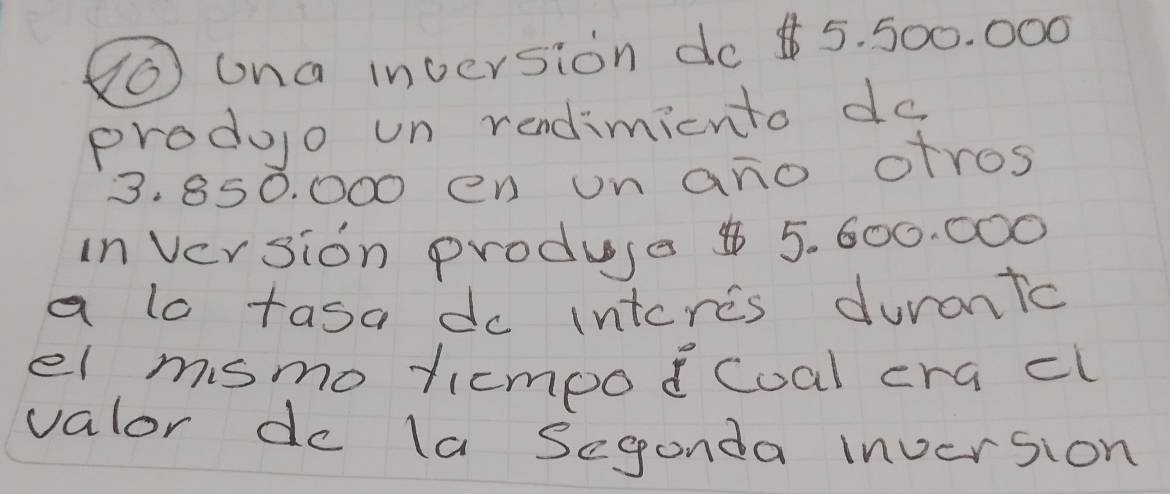 10 una inversión de $ 5.500.000
produjo un rendimiento de
3.850.000 en un año otros
inversión produjo $ 5.600.000
a la tasa de interés durante
el mismo tiempo ¿ cual era el
valor de la segonda inversion